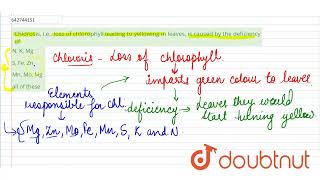 642744151
Chlorosis, i.e., loss of chlorophyll leading to yellowing in leaves, is caused by the deficiency of
N, K, Mg
S, Fe, Zn,
Mn, Mo, Mg
all of these
Chlorosis - Loss of chlorophyll
imparts green colour to leaves
Elements responsible for Chl.
deficiency
Leaves they would start turning yellow
Mg, Zn, Mo, Fe, Mn, S, K and N
doubtnut